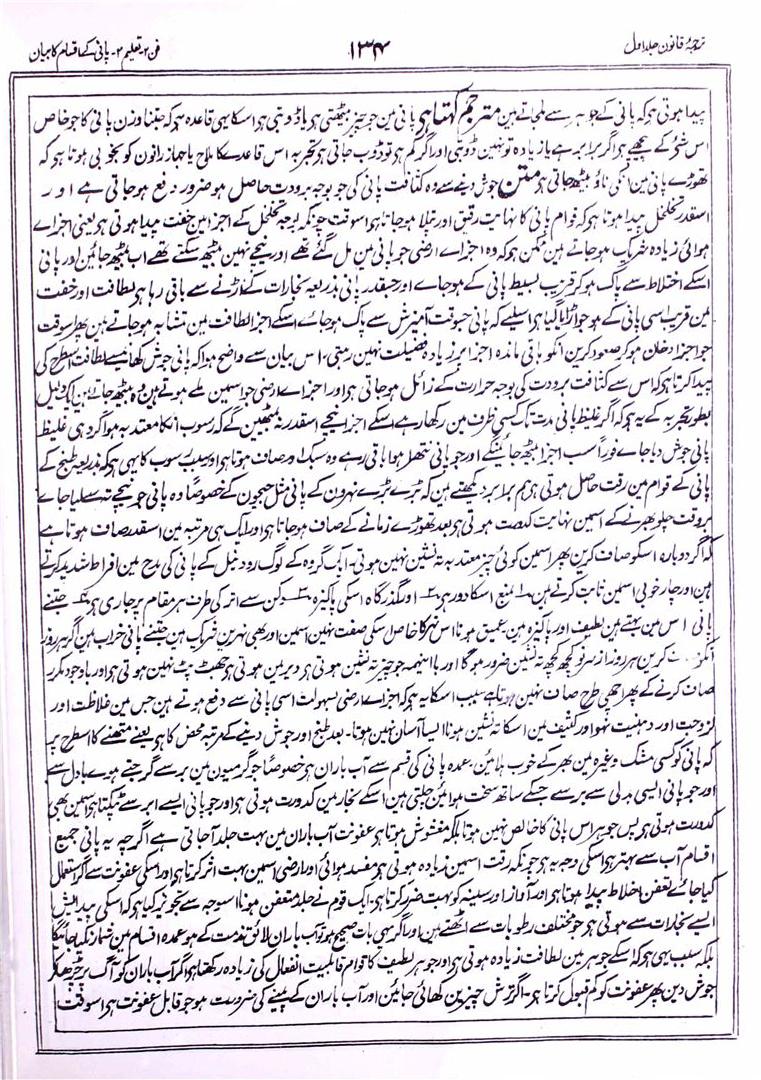 ترجمۂ قانون جلد اول ۱۳۴ فن ۲ تعلیم ۲- پانی کے اقسام کا بیان
پیدا ہوتی ہے کہ پانی کے جوہر سے ملجاتے ہین مترجم کہتا ہے پانی مین جو چیز بیٹھتی ہے یا ڈوبتی ہے اسکا یہی قاعدہ ہے کہ جتنا وزن پانی کا جو خاص
اس شئ کے نیچے ہے اگر برابر ہے یا زیادہ تو نہین ڈوبتی اور اگر کم ہے تو ڈوب جاتی ہے تجربہ اس قاعدے کا ملاح یا جہاز رانون کو بخوبی ہوتا ہے کہ
تھوڑے پانی مین انکی ناؤ بیٹھ جاتی ہے متن جوش دینے سے وہ کثافت پانی کی جو بوجہ برودت حاصل ہو ضرور دفع ہو جاتی ہے اور
اسقدر تخلخل پیدا ہوتا ہے کہ قوام پانی کا نہایت رقیق اور پتلا ہو جاتا ہے اسوقت چونکہ بوجہ تخلخل کے اجزا مین خفت پیدا ہوتی ہے یعنی اجزاے
ہوائی زیادہ شریک ہو جاتے ہین ممکن ہے کہ وہ اجزاے ارضی جو پانی مین مل گئے تھے اور نیچے نہین بیٹھ سکتے تھے اب بیٹھ جائین اور پانی
اسکے اختلاط سے پاک ہو کر قریب بسیط پانی کے ہو جاے اور جسقدر پانی بذریعہ بخارات کے اڑنے سے باقی رہا ہے لطافت اور خفت
مین قریب اسی پانی کے ہے جو اڑایا گیا ہے اسلیے کہ پانی جسوقت آمیزش سے پاک ہو جاے اسکے اجزا لطافت مین متشابہ ہو جاتے ہین پھر اسوقت
جو اجزا دخان ہو کر صعود کرین انکو باقی ماندہ اجزا پر زیادہ فضیلت نہین رہتی۔ اس بیان سے واضح ہوا کہ پانی جوش کھانیسے لطافت اسطرح کی
پیدا کرتا ہے کہ اس سے کثافت برودت کی بوجہ حرارت کے زائل ہو جاتی ہے اور اجزاے ارضی جو اسمین ملے ہوتے ہین وہ بیٹھ جاتے ہین ایک دلیل
بطور تجربہ کے یہ ہے کہ اگر غلیظ پانی مدت تک کسی ظرف مین رکھا رہے اسکے اجزا نیچے اسقدر نہ بیٹھین گے کہ رسوب انکا معتد بہ ہو اگر وہی غلیظ
پانی جوش دیا جاے فوراً سب اجزا بیٹھ جائینگے اور جو پانی نتھرا ہوا باقی رہے وہ سبک اور صاف ہوتا ہے اور سبب رسوب کا یہی ہے کہ بذریعہ طبخ کے
پانی کے قوام مین رقت حاصل ہوتی ہے ہم برابر دیکھتے ہین کہ بڑے بڑے نہرون کے پانی مثل جیحون کے خصوصاً وہ پانی جو نیچے تہ سے لیا جاے
بروقت چلو بھرنے کے اسمین نہایت کدورت ہوتی ہے بعد تھوڑے زمانے کے صاف ہو جاتا ہے اور ایک ہی مرتبہ مین اسقدر صاف ہوتا ہے
کہ اگر دوبارہ اسکو صاف کرین پھر اسمین کوئی چیز معتد بہ تہ نشین نہین ہوتی۔ ایک گروہ کے لوگ رود نیل کے پانی کی مدح مین افراط شدید کرتے
ہین اور چار خوبی اسمین ثابت کرتے ہین ۱۔ منبع اسکا دور ہے ۲۔ اور گذرگاہ اسکی پاکیزہ ۳۔ دکن سے اتر کی طرف ہر مقام پر جاری ہے ۴۔ جتنے
پانی اس مین بہتے ہین لطیف اور پاکیزہ ہین عمیق ہونا اس نہر کا خاص اسکی صفت نہین اسمین اور بھی نہرین شریک ہین جتنے پانی خراب ہین اگر ہر روز
کرین ہر روز از سر نو کچھ کچھ تہ نشین ضرور ہوگا اور با اینہمہ جو چیز تہ نشین ہوتی ہے دیر مین ہوتی ہے جھٹ پٹ نہین ہوتی ہے اور باوجود مکرر
صاف کرنے کے پھر اچھی طرح صاف نہین ہوتا ہے سبب اسکا یہ ہے کہ اجزاے ارضی بسہولت اسی پانی سے دفع ہوتے ہین جس مین غلاظت اور
لزوجت اور دہنیت نہو اور کثیف مین اسکا تہ نشین ہونا ایسا آسان نہین ہوتا۔ بعد طبخ اور جوش دینے کے مرتبہ محض کا ہے یعنے متھنے کا اسطرح پر
کہ پانی کو کسی مشک وغیرہ مین بھر کے خوب ہلائین۔ عمدہ پانی کی قسم سے آب باران ہے خصوصاً جو گرمیون مین برسے گرجتے ہوے بادل سے
اور جو پانی ایسی بدلی سے برسے جسکے ساتھ سخت ہوائین چلتی ہین اسکے بخار مین کدورت ہوتی ہے اور جو پانی ایسے ابر سے ٹپکتا ہے اسمین بھی
کدورت ہوتی ہے پس جوہر اس پانی کا خالص نہین ہوتا بلکہ مغشوش ہوتا ہے عفونت آب باران مین بہت جلد آ جاتی ہے اگرچہ یہ پانی جمیع
اقسام آب سے بہتر ہے اسکی وجہ یہ ہے چونکہ رقت اسمین زیادہ ہوتی ہے مفسد ہوائی اور ارضی اسمین بہت اثر کرتا ہے اور اسکی عفونت سے اگر استعمال
کیا جائے تعفن اخلاط پیدا ہوتا ہے اور آواز اور سینہ کو بہت ضرر کرتا ہے۔ ایک قوم نے جلد متعفن ہونا اسوجہ سے تجویز کیا ہے کہ اسکی پیدائش
ایسے بخارات سے ہوتی ہے جو مختلف رطوبات سے اٹھتے ہین اور اگر یہی بات صحیح ہو تو آب باران لائق مذمت کے ہو عمدہ اقسام مین شمار نہ کیا جائیگا
بلکہ سبب یہی ہے کہ اسکے جوہر مین لطافت زیادہ ہوتی ہے اور جو ہر لطیف کا قوام قابلیت انفعال کی زیادہ رکھتا ہے اگر آب باران کو آگ پر چڑھا کر
جوش دین پھر عفونت کو کم قبول کرتا ہے۔ اگر ترش چیزین کھائی جائین اور آب باران کے پینے کی ضرورت ہو جو قابل عفونت ہے اسوقت